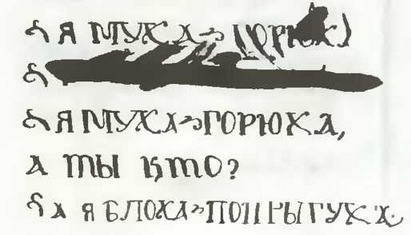 – Я МУХА-ГОРЮХ
– Я МУХА-ГОРЮХА,
А ТЫ КТО?
– А Я БЛОХА-ПОПРЫГУХА.